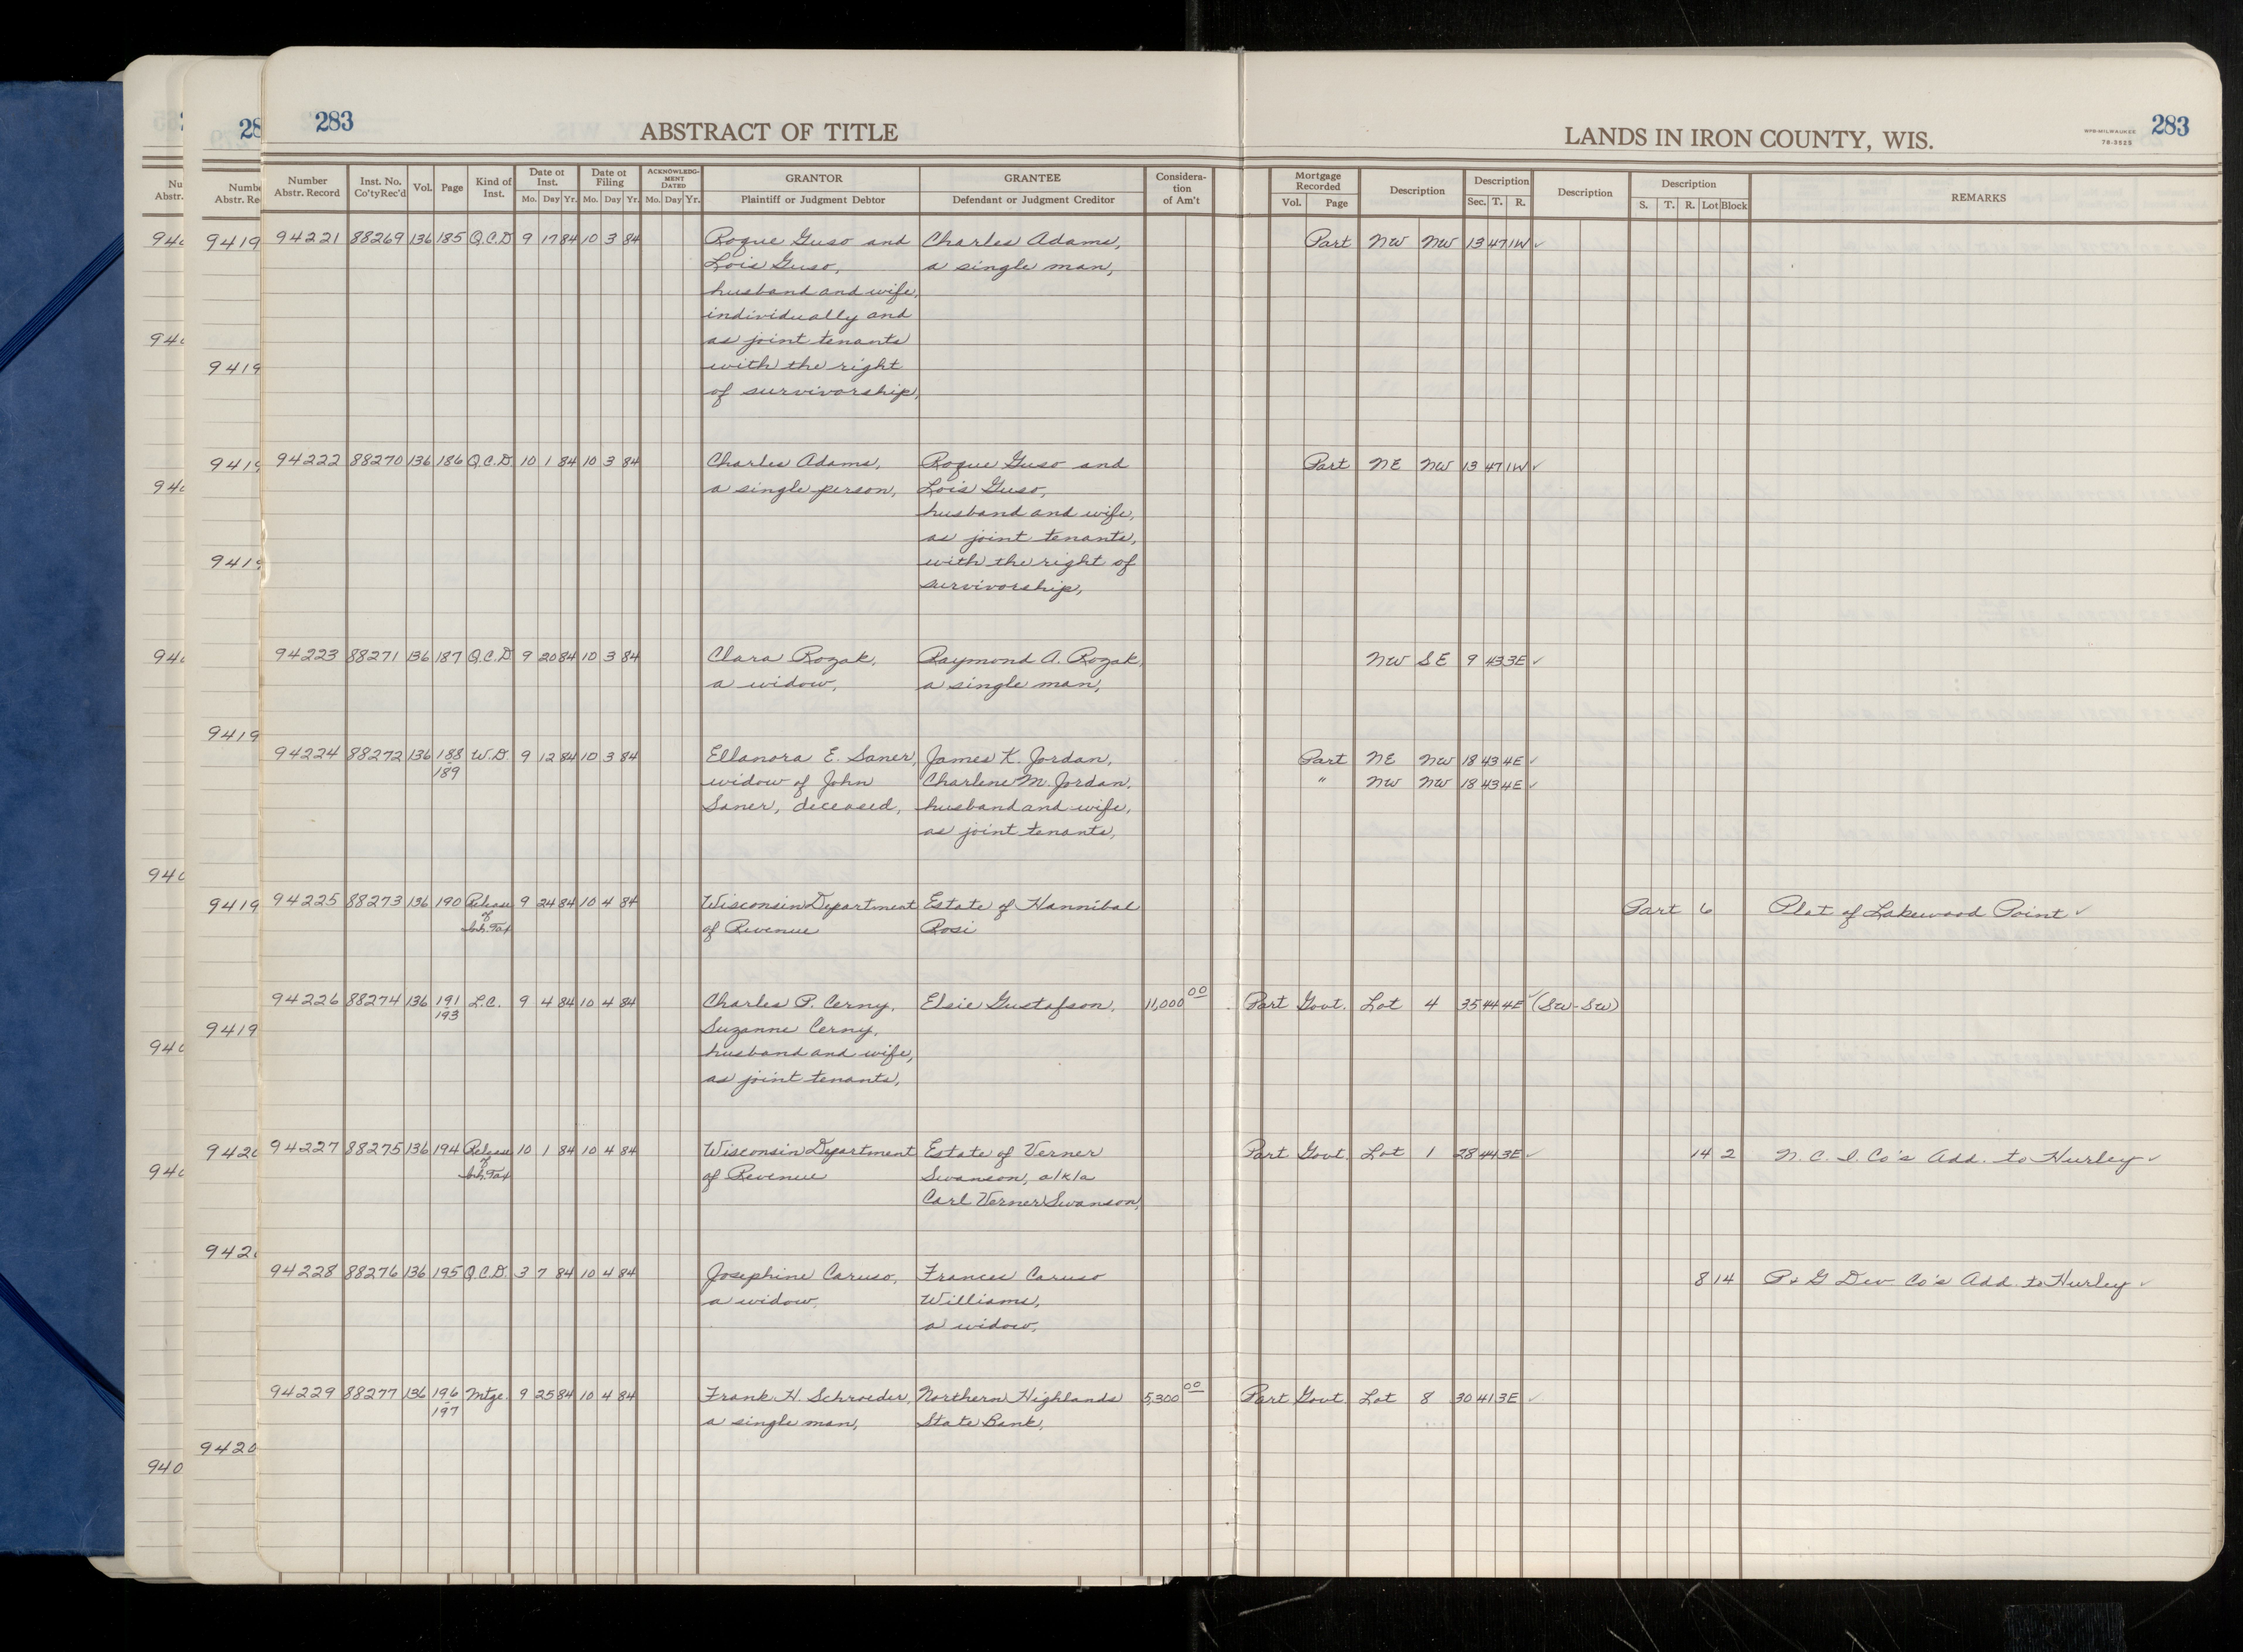 283
ABSTRACT OF TITLE
LANDS IN IRON COUNTY, WIS.
NPB-MILWAUKEE
78-3525
283
Number Abstr. Record | Inst. No. Co'tyRec'd | Vol. | Page | Kind of Inst. | Date of Inst. Mo. Day Yr. | Date of Filing Mo. Day Yr. | ACKNOWLEDGMENT DATED Mo. Day Yr. | GRANTOR Plaintiff or Judgment Debtor | GRANTEE Defendant or Judgment Creditor | Consideration of Am't | Mortgage Recorded Vol. Page | Description | Description Sec. T. R. | Description | Description S. T. R. Lot Block | REMARKS
94221 88269 136 185 Q.C.D 9 17 84 10 3 84 Roque Guso and Charles Adams, Part NW NW 13 47 1W ✓
Lois Guso, a single man,
husband and wife,
individually and
as joint tenants
with the right
of survivorship,
94222 88270 136 186 Q.C.D 10 1 84 10 3 84 Charles Adams, Roque Guso and Part NE NW 13 47 1W ✓
a single person, Lois Guso,
husband and wife,
as joint tenants,
with the right of
survivorship,
94223 88271 136 187 Q.C.D 9 20 84 10 3 84 Clara Rozak, Raymond A. Rozak, NW SE 9 43 3E ✓
a widow, a single man,
94224 88272 136 188-189 W.D. 9 12 84 10 3 84 Ellanora E. Saner, James K. Jordan, Part NE NW 18 43 4E ✓
widow of John Charlene M. Jordan, " NW NW 18 43 4E ✓
Saner, deceased, husband and wife,
as joint tenants,
94225 88273 136 190 Release of Inh. Tax 9 24 84 10 4 84 Wisconsin Department Estate of Hannibal Part 6 Plat of Lakewood Point ✓
of Revenue Rosi
94226 88274 136 191-193 L.C. 9 4 84 10 4 84 Charles P. Cerny, Elsie Gustafson, 11,000 00 Part Govt. Lot 4 35 44 4E ✓ (SW-SW)
Suzanne Cerny,
husband and wife,
as joint tenants,
94227 88275 136 194 Release of Inh. Tax 10 1 84 10 4 84 Wisconsin Department Estate of Verner Part Govt. Lot 1 28 44 3E ✓ 14 2 N. C. I. Co's Add. to Hurley ✓
of Revenue Swanson, a/k/a
Carl Verner Swanson,
94228 88276 136 195 Q.C.D. 3 7 84 10 4 84 Josephine Caruso, Frances Caruso 8 14 P. & G Dev Co's Add. to Hurley ✓
a widow, Williams,
a widow,
94229 88277 136 196-197 Mtge. 9 25 84 10 4 84 Frank H. Schroeder, Northern Highlands 5,300 00 Part Govt. Lot 8 30 41 3E ✓
a single man, State Bank,